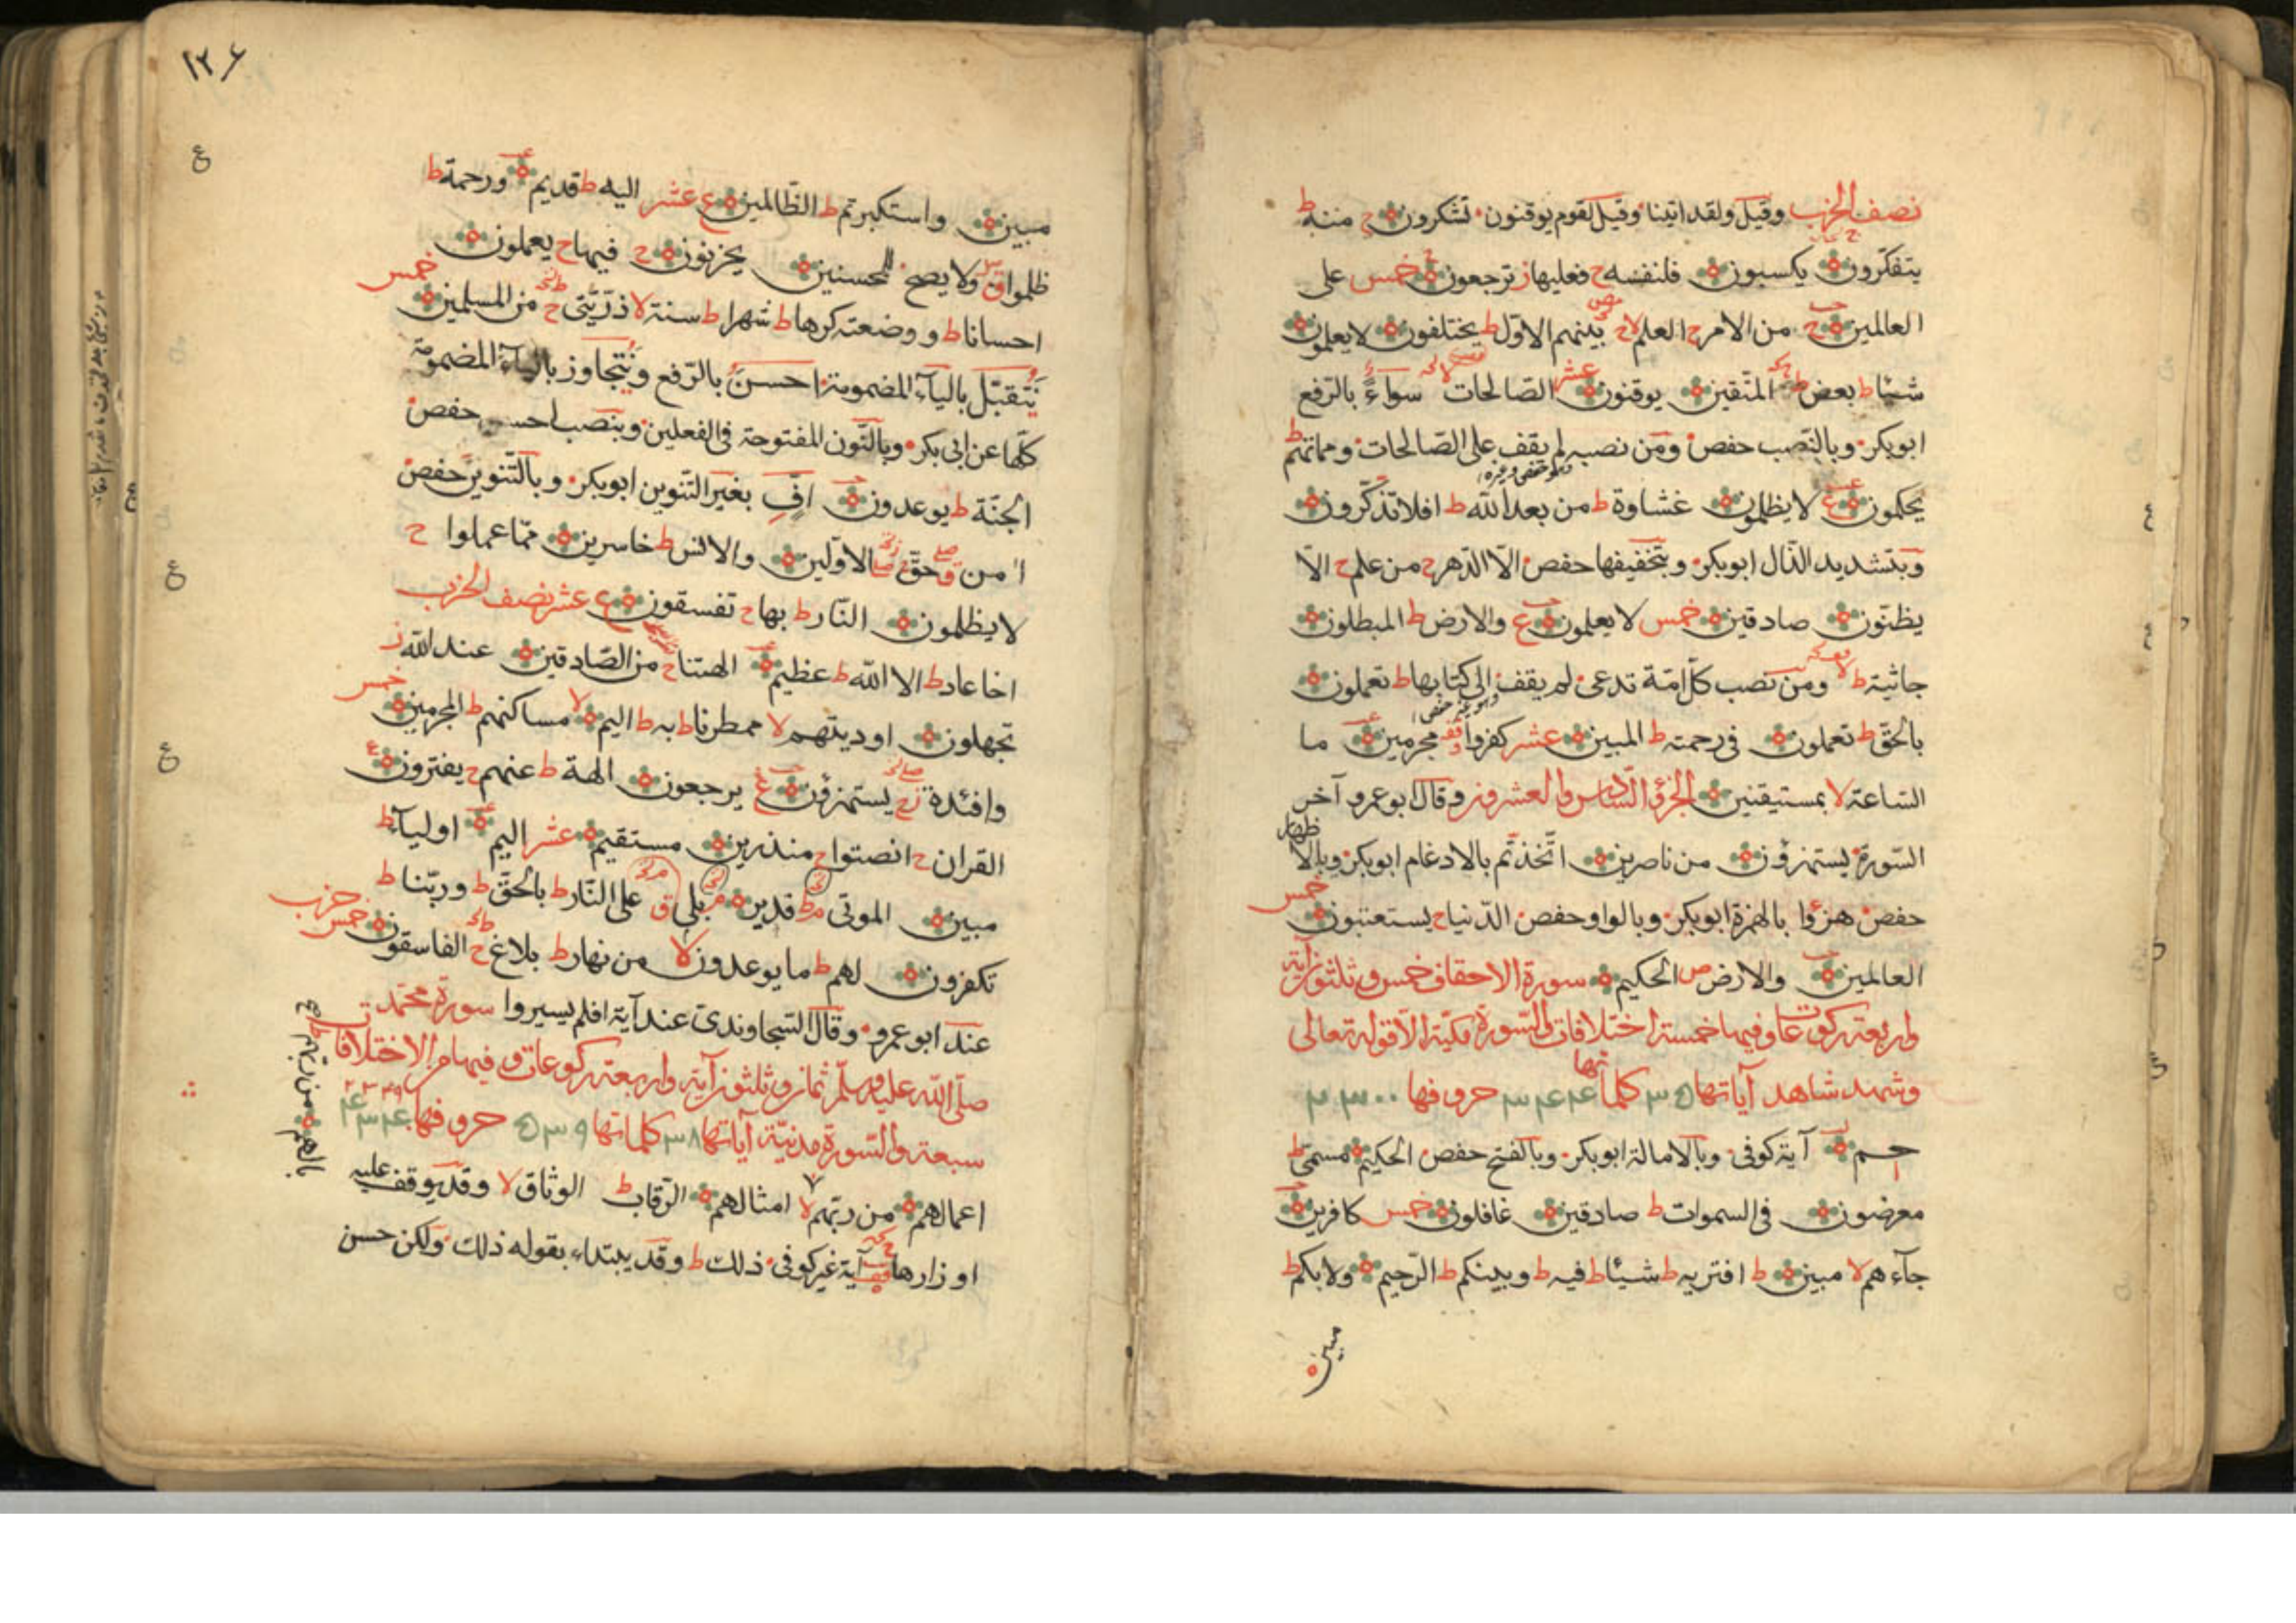 نصف الحزب وقيل ولقد اتينا وقيل لقوم يوقنون تشكرون ح منه ط
يتفكرون يكسبون فلنفسه ح فعليها ز ترجعون خمس على
العالمين ح من الامر ح العلم لا بينهم الاول ط يختلفون لا يعلمون
شيئا ط بعض ط المتقين يوقنون عشر الصالحات لا سواء بالرفع
ابوبكر وبالنصب حفص ومن نصبه لم يقف على الصالحات ومماتهم ط
يحكمون ع لا يظلمون غشاوة ط من بعد الله ط افلا تذكرون
وبتشديد الذال ابوبكر وبتخفيفها حفص الا الدهر ح من علم ح الا
يظنون صادقين خمس لا يعلمون ع والارض ط المبطلون
جاثية ط ومن نصب كل امة تدعى لم يقف الى كتابها ط تعملون
بالحق ط تعملون فى رحمته ط المبين عشر كفروا مجرمين ما
الساعة لا بمستيقنين الجزؤ السادس والعشرون وقال ابو عمرو آخر
السورة يستهزؤن من ناصرين اتخذتم بالادغام ابوبكر وبالا ظهار
حفص هزؤا بالهمزة ابوبكر وبالواو حفص الدنيا ح يستعتبون خمس
العالمين والارض ص الحكيم سورة الاحقاف خمس وثلثون آية
واربعة ركوعات وفيها خمسة اختلافات والسورة مكية الا قوله تعالى
وشهد شاهد آياتها ٣٥ كلماتها ٣٤٤ حروفها
حم آية كوفى وبالامالة ابوبكر وبالفتح حفص الحكيم مسمى ط
معرضون فى السموات ط صادقين غافلون خمس كافرين
جآءهم لا مبين ط افتريه ط شيئا ط فيه ط وبينكم ط الرحيم ولا بكم ط
مبين
١٢٤
مبين واستكبرتم ط الظالمين ع عشر اليه ط قديم ورحمة ط
ظلموا ق ولا يصح للمحسنين يحزنون ح فيها ح يعملون
احسانا ط ووضعته كرها ط شهرا ط سنة لا ذريتى ح من المسلمين خمس
يتقبل بالياء المضمومة احسن بالرفع ويتجاوز بالياء المضمومة
كلها عن ابى بكر وبالنون المفتوحة فى الفعلين وبنصب احسن حفص
الجنة ط يوعدون اف بغير التنوين ابوبكر وبالتنوين حفص
امن ق حق الاولين والانس ط خاسرين مما عملوا ح
لا يظلمون النار ط بها ح تفسقون ع عشر نصف الحزب
اخا عاد ط الا الله ط عظيم الهتنا ح من الصادقين عند الله ز
تجهلون اوديتهم لا ممطرنا ط به ط اليم لا مساكنهم ط المجرمين خمس
وافئدة يستهزؤن ع يرجعون الهة ط عنهم ح يفترون
القران ح انصتوا ح منذرين مستقيم عشر اليم اوليآء ط
مبين الموتى ط قدير بلى ق على النار ط بالحق ط وربنا ط
تكفرون لهم ط ما يوعدون لا من نهار ط بلاغ ح الفاسقون خمس حزب
عند ابو عمرو وقال السجاوندى عند آية افلم يسيروا سورة محمد
صلى الله عليه وسلم ثمان وثلثون آية واربعة ركوعات وفيها من الاختلافات
سبعة والسورة مدنية آياتها ٣٨ كلماتها ٥٣٩ حروفها
اعمالهم من ربهم لا امثالهم الرقاب ط الوثاق لا وقد يوقف عليه
اوزارها آية غير كوفى ذلك ط وقد يبتداء بقوله ذلك ولكن حسن
بالهم من ربهم